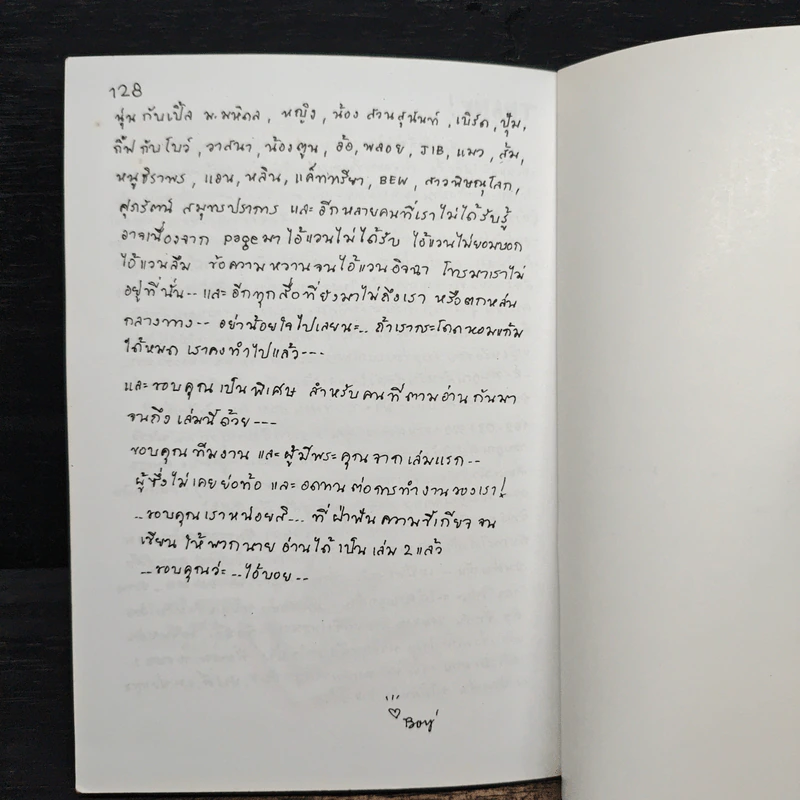 128
นุ่น กับเปิ้ล ม.มหิดล, หญิง, น้อง สวนสุนันท์, เบิร์ด, ปุ้ม,
กิ๊ฟ กับ โบว์, วาสนา, น้องตูน, อ้อ, พลอย, JIB, แมว, ส้ม,
หนูธิราพร, แอน, หลิน, แค็ททรียา, BEW, สาวพิษณุโลก,
สุภรัตน์ สมุทรปราการ และ อีกหลายคนที่เราไม่ได้รับรู้
อาจเนื่องจาก pageมา ไอ้แวนไม่ได้รับ ไอ้แวนไม่ยอมบอก
ไอ้แวนลืม ข้อความหวานจนไอ้แวนอิจฉา โทรมาเราไม่
อยู่ที่นั่น-- และ อีกทุกสื่อที่ยังมาไม่ถึงเรา หรือตกหล่น
กลางทาง-- อย่าน้อยใจไปเลยนะ-- ถ้าเรากระโดดหอมแก้ม
ได้หมด เราคงทำไปแล้ว---
และ ขอบคุณเป็นพิเศษ สำหรับคนที่ตามอ่านกันมา
จนถึง เล่มนี้ด้วย---
ขอบคุณทีมงาน และผู้มีพระคุณจากเล่มแรก--
ผู้ซึ่งไม่เคยย่อท้อ และ อดทนต่อการทำงานของเรา!
--ขอบคุณเราหน่อยสิ--- ที่ฝ่าฟันความขี้เกียจ จน
เขียน ให้พวกนาย อ่านได้ เป็นเล่ม 2 แล้ว
--ขอบคุณว่ะ--ไอ้บอย--
Boy